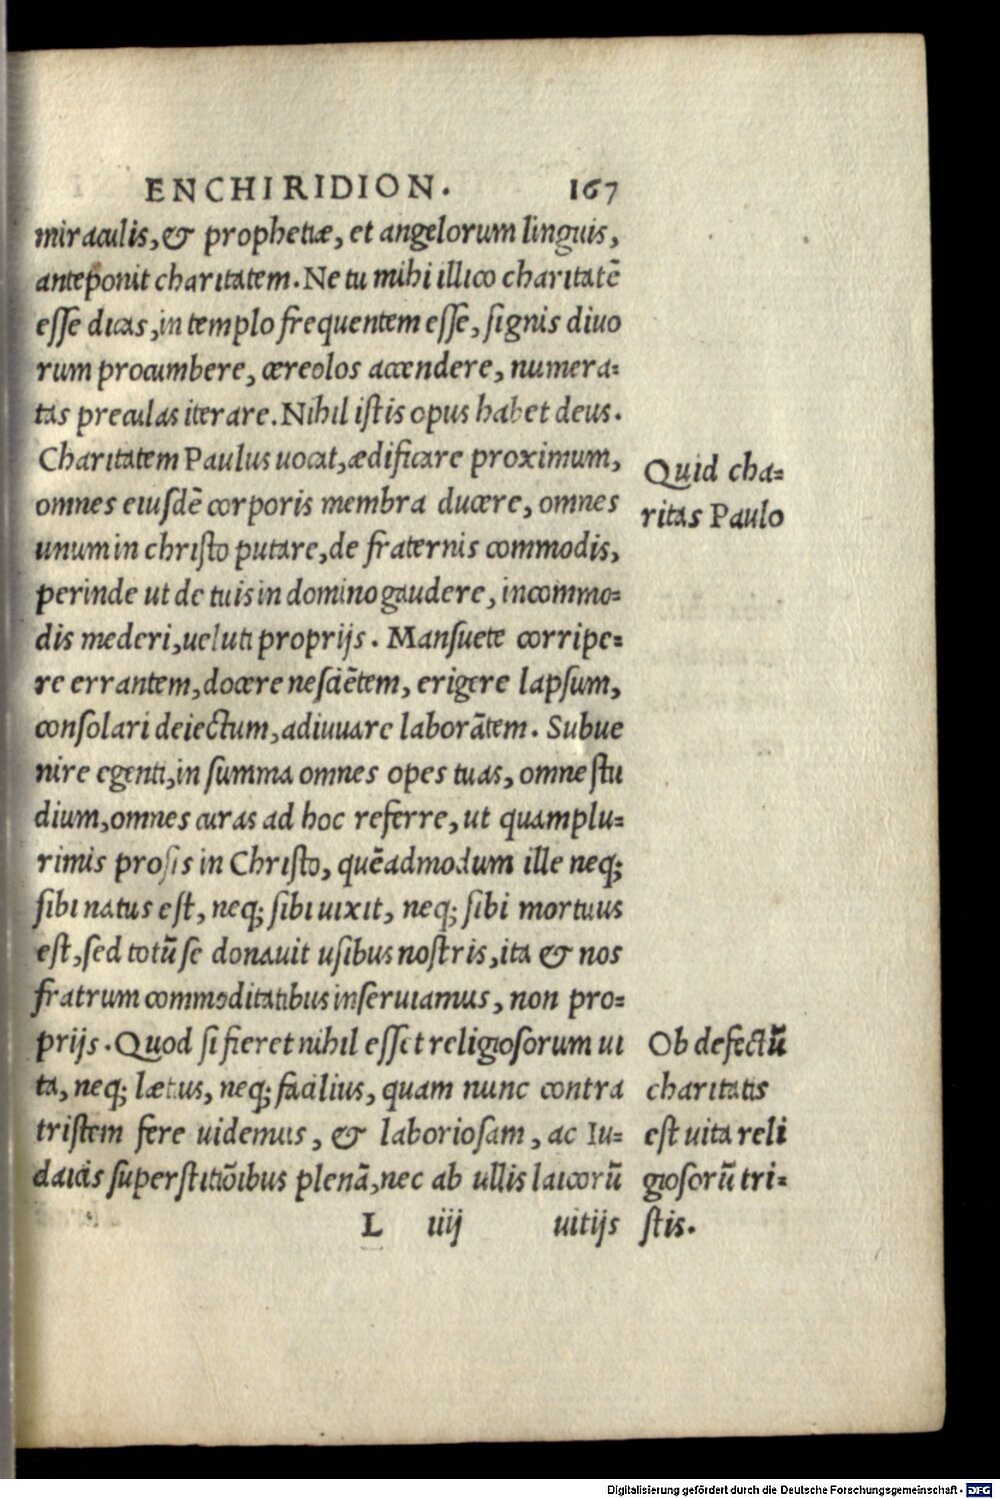 ENCHIRIDION. 167
miraculis, & prophetiæ, et angelorum linguis,
anteponit charitatem. Ne tu mihi illico charitatē
esse dicas, in templo frequentem esse, signis diuo
rum procumbere, cereolos accendere, numera=
tas preculas iterare. Nihil istis opus habet deus.
Charitatem Paulus uocat, ædificare proximum,
omnes eiusdē corporis membra ducere, omnes
unum in christo putare, de fraternis commodis,
perinde ut de tuis in domino gaudere, incommo=
dis mederi, ueluti proprijs. Mansuete corripe=
re errantem, docere nesciētem, erigere lapsum,
consolari deiectum, adiuuare laborātem. Subue
nire egenti, in summa omnes opes tuas, omne stu
dium, omnes curas ad hoc referre, ut quamplu=
rimis prosis in Christo, quēadmodum ille neq;
sibi natus est, neq; sibi uixit, neq; sibi mortuus
est, sed totū se donauit usibus nostris, ita & nos
fratrum commoditatibus inseruiamus, non pro=
prijs. Quod si fieret nihil esset religiosorum ui
ta, neq; lætius, neq; facilius, quam nunc contra
tristem fere uidemus, & laboriosam, ac Iu=
daicis superstitiōibus plenā, nec ab ullis laicorū
L iiij uitijs
Quid cha=
ritas Paulo
Ob defectū
charitatis
est uita reli
giosorū tri=
stis.
Digitalisierung gefördert durch die Deutsche Forschungsgemeinschaft - DFG